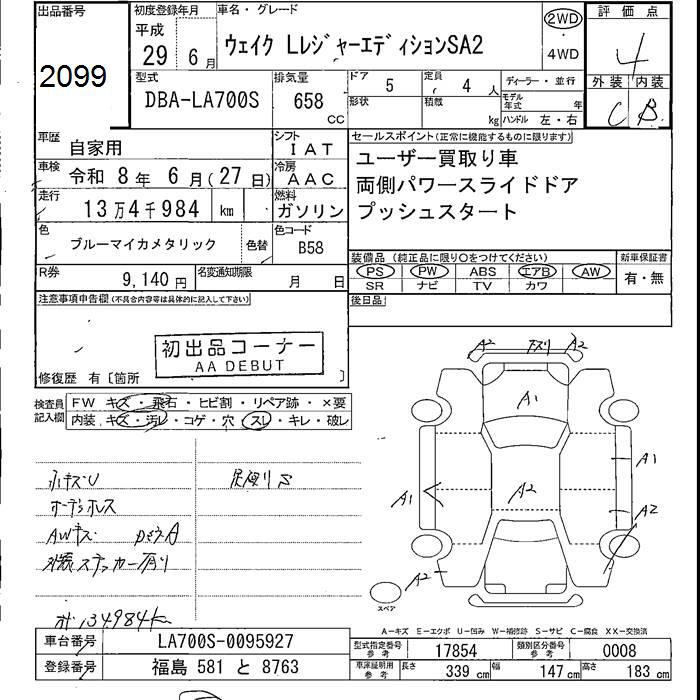 出品番号
2099
初度登録年月
平成
29 6月
車名・グレード
ウェイク LレジャーエディションSA2
2WD
・
4WD
評価点
4
外装 内装
C B
型式
DBA-LA700S
排気量
658
CC
ドア 5
形状
定員 4 人
積載 kg
ディーラー・並行
モデル年式 年
ハンドル 左・右
車歴 自家用
シフト IAT
車検 令和 8年 6月(27日)
冷房 AAC
走行 13万4千984 km
燃料 ガソリン
色 ブルーマイカメタリック 色替
色コード B58
R券 9,140円
名変通知期限 月 日
セールスポイント(正常に機能するものに限ります)
ユーザー買取り車
両側パワースライドドア
プッシュスタート
装備品(純正品に限り○をつけてください)
新車保証書
PS PW ABS エアB AW
有・無
SR ナビ TV カワ
後日品
注意事項申告欄(不具合内容等は具体的に記入して下さい)
初出品コーナー
AA DEBUT
修復歴 有〔箇所 〕
検査員記入欄
FW キズ・飛石・ヒビ割・リペア跡・×要
内装 キズ・汚レ・コゲ・穴・スレ・キレ・破レ
小キズU
オーデオレス
AWキズ
ステッカー有り
オド134984k
A2 A2
A1
A1
A2
A1
A2
A2
スペア
A-キズ E-エクボ U-凹み W-補修跡 S-サビ C-腐食 XX-交換済
車台番号 LA700S-0095927
登録番号 福島 581 と 8763
型式指定番号 参考 17854
類別区分番号 参考 0008
車庫証明用 参考 長さ 339 cm 幅 147 cm 高さ 183 cm